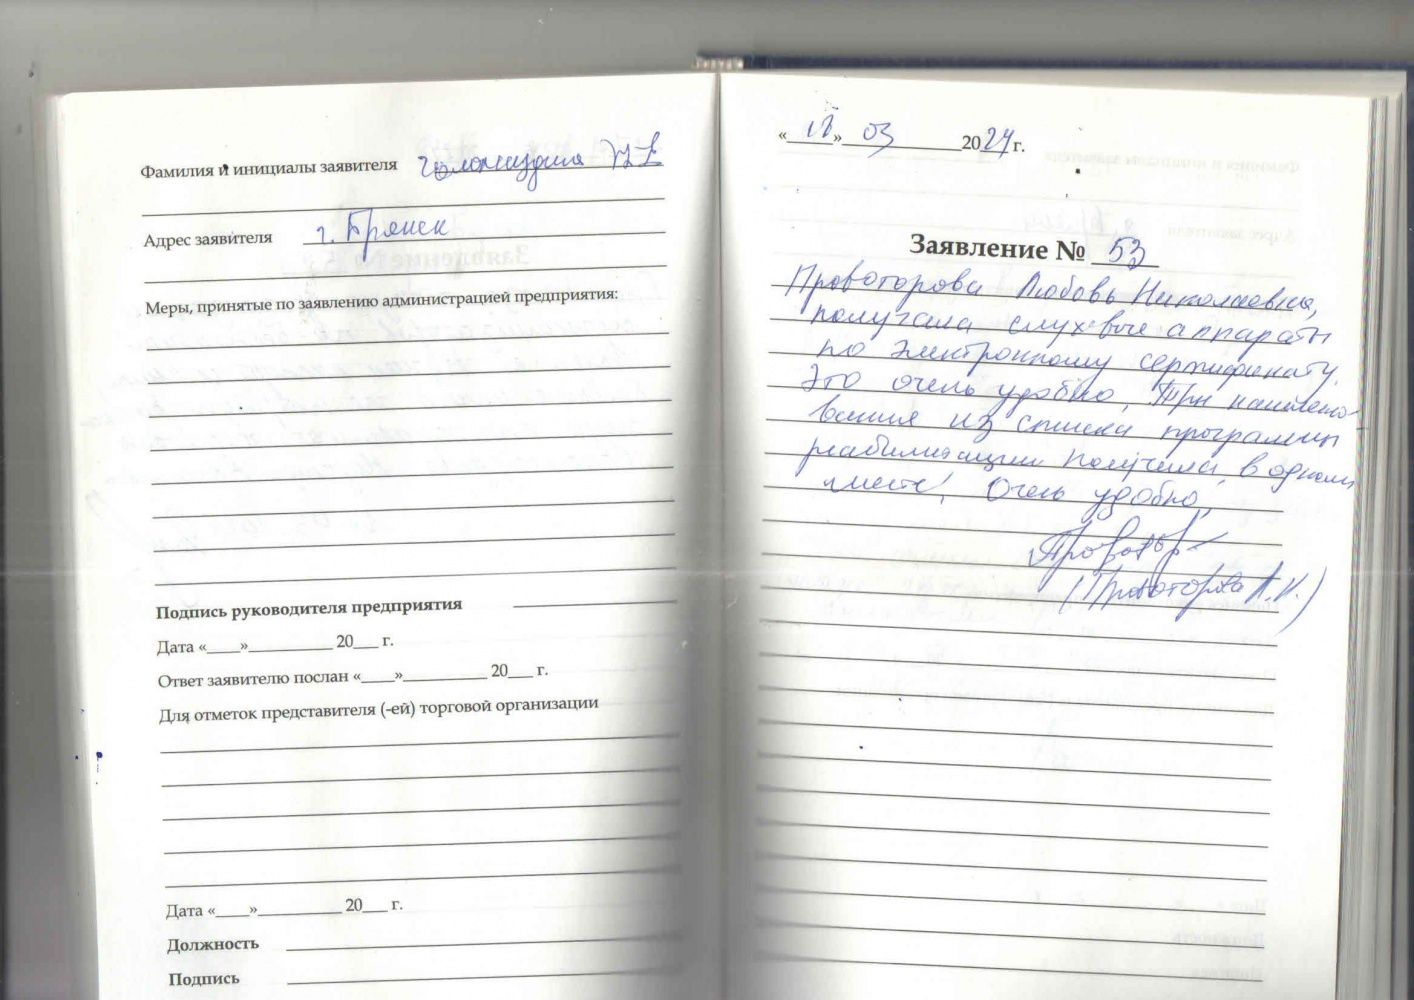 Фамилия и инициалы заявителя
Адрес заявителя г. Брянск
Меры, принятые по заявлению администрацией предприятия:
Подпись руководителя предприятия
Дата «____»__________ 20___ г.
Ответ заявителю послан «____»__________ 20___ г.
Для отметок представителя (-ей) торговой организации
Дата «____»__________ 20___ г.
Должность
Подпись
«18» 03 2024 г.
Заявление № 53
Провоторова Любовь Николаевна,
получала слуховые аппараты
по электронному сертификату.
Это очень удобно. Три наимено-
вания из списка программы
реабилитации получила в одном
месте! Очень удобно.
Провотор
(Провоторова Л.Н.)